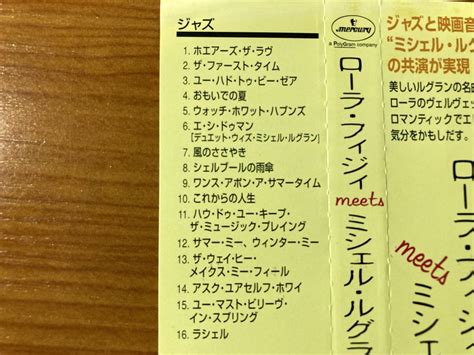 ジャズ
1. ホエアーズ・ザ・ラヴ
2. ザ・ファースト・タイム
3. ユー・ハド・トゥ・ビー・ゼア
4. おもいでの夏
5. ウォッチ・ホワット・ハプンズ
6. エ・シ・ドゥマン
[デュエット・ウィズ・ミシェル・ルグラン]
7. 風のささやき
8. シェルブールの雨傘
9. ワンス・アポン・ア・サマータイム
10. これからの人生
11. ハウ・ドゥ・ユー・キープ・
ザ・ミュージック・プレイング
12. サマー・ミー、ウィンター・ミー
13. ザ・ウェイ・ヒー・
メイクス・ミー・フィール
14. アスク・ユアセルフ・ホワイ
15. ユー・マスト・ビリーヴ・
イン・スプリング
16. ラシェル
mercury
a PolyGram company
ローラ・フィジィ meets ミシェル・ルグラ
ジャズと映画音
“ミシェル・ルグ
の共演が実現
美しいルグランの名曲
ローラのヴェルヴェッ
ロマンティックでエリ
気分をかもしだす。
ローラ・フ
meets
ミシ